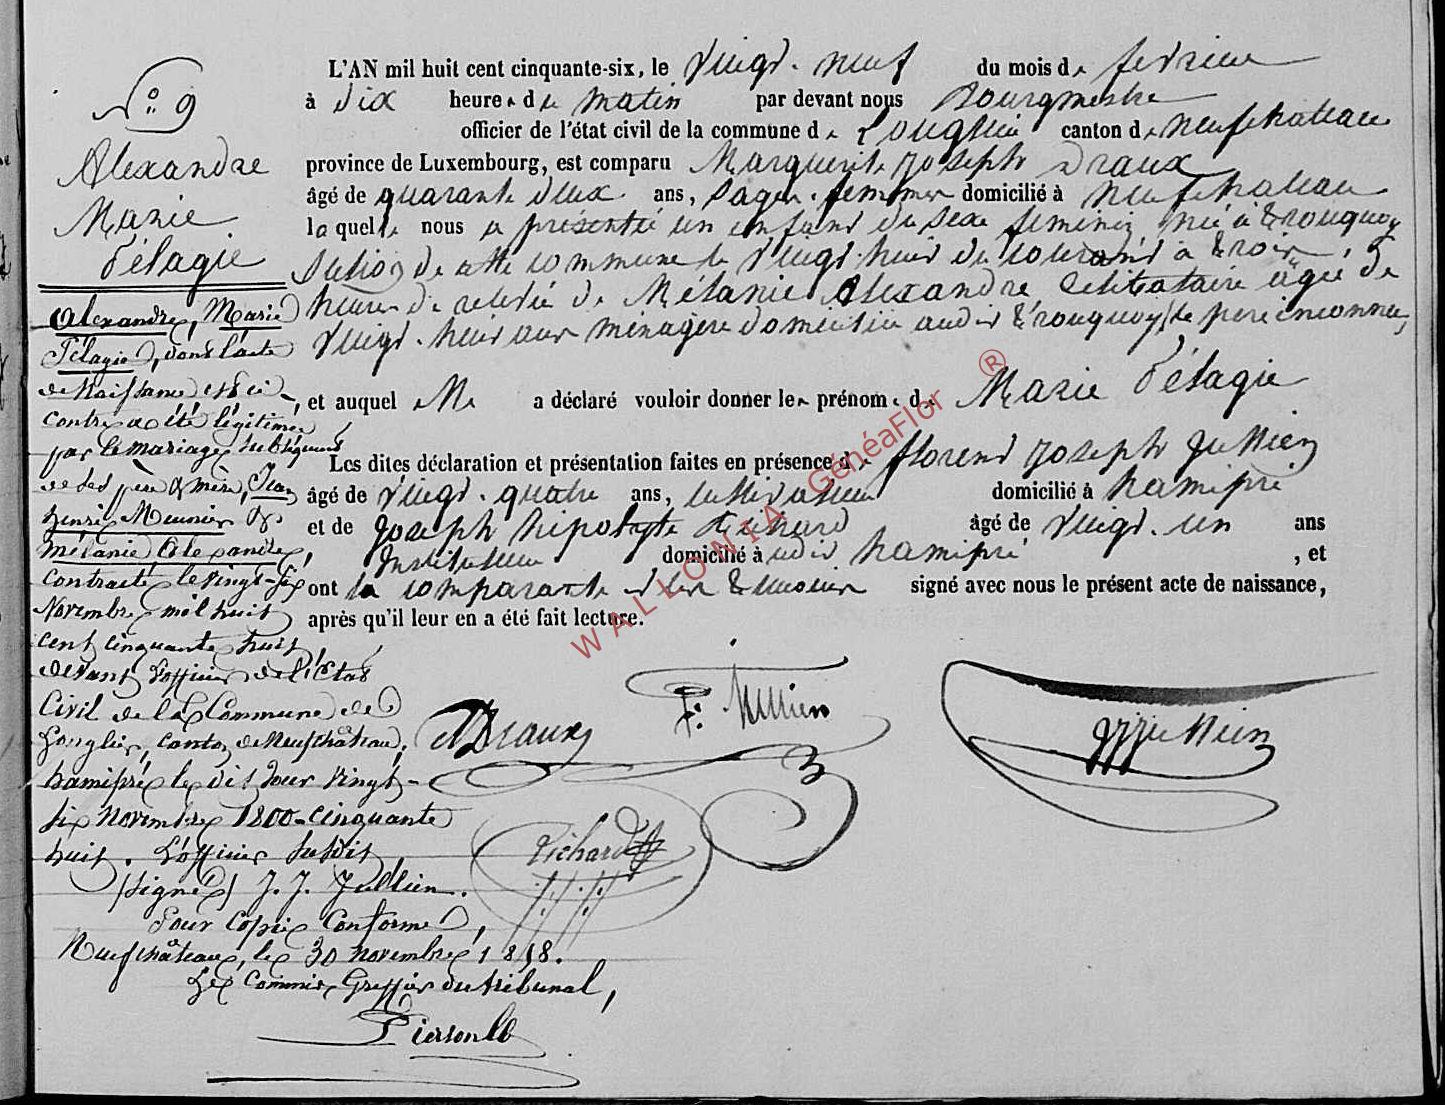 N° 9
Alexandre
Marie
Pélagie
Alexandre, Marie
Pélagie, dont l'acte
de naissance est ci-
contre a été légitimée
par le mariage subséquent
de ses père & mère, Jean
henri Meunier &
mélanie Alexandre,
contracté le vingt-six
Novembre mil huit
cent cinquante huit
devant l'officier de l'Etat
Civil de la Commune de
Longlier, canton de Neufchâteau,
hamipré le dit jour vingt-
six novembre 1800-cinquante
huit. L'officier susdit,
(signé) J. J. Jullien.
Pour Copie Conforme,
Neufchâteau, le 30 novembre 1858.
Le Commis Greffier du tribunal,
L'AN mil huit cent cinquante-six, le vingt-neuf du mois de fevrier
à dix heures du matin par devant nous Bourgmestre
officier de l'état civil de la commune de Longlier canton de neufchateau
province de Luxembourg, est comparu Marguerite joseph Draux
âgé de quarante deux ans, sage-femme domicilié à neufchateau
laquelle nous a présenté un enfant du sexe feminin né à tronquoy
section de cette commune le vingt-huit du courant à trois
heures de relevée de Mélanie Alexandre celibataire agée de
vingt-huit ans ménagère domiciliée audit tronquoy, de pere inconnu,
et auquel M a déclaré vouloir donner les prénoms de Marie Pélagie
Les dites déclaration et présentation faites en présence de florent joseph Jullien
âgé de vingt-quatre ans, cultivateur domicilié à hamipré
et de joseph hipolyte Richard âgé de vingt-un ans
Instituteur domicilié à audit hamipré, et
ont la comparante et les témoins signé avec nous le présent acte de naissance,
après qu'il leur en a été fait lecture.
MDraux
F: Jullien
JJJullien
Richard
WALLONIA GénéaFlor ®